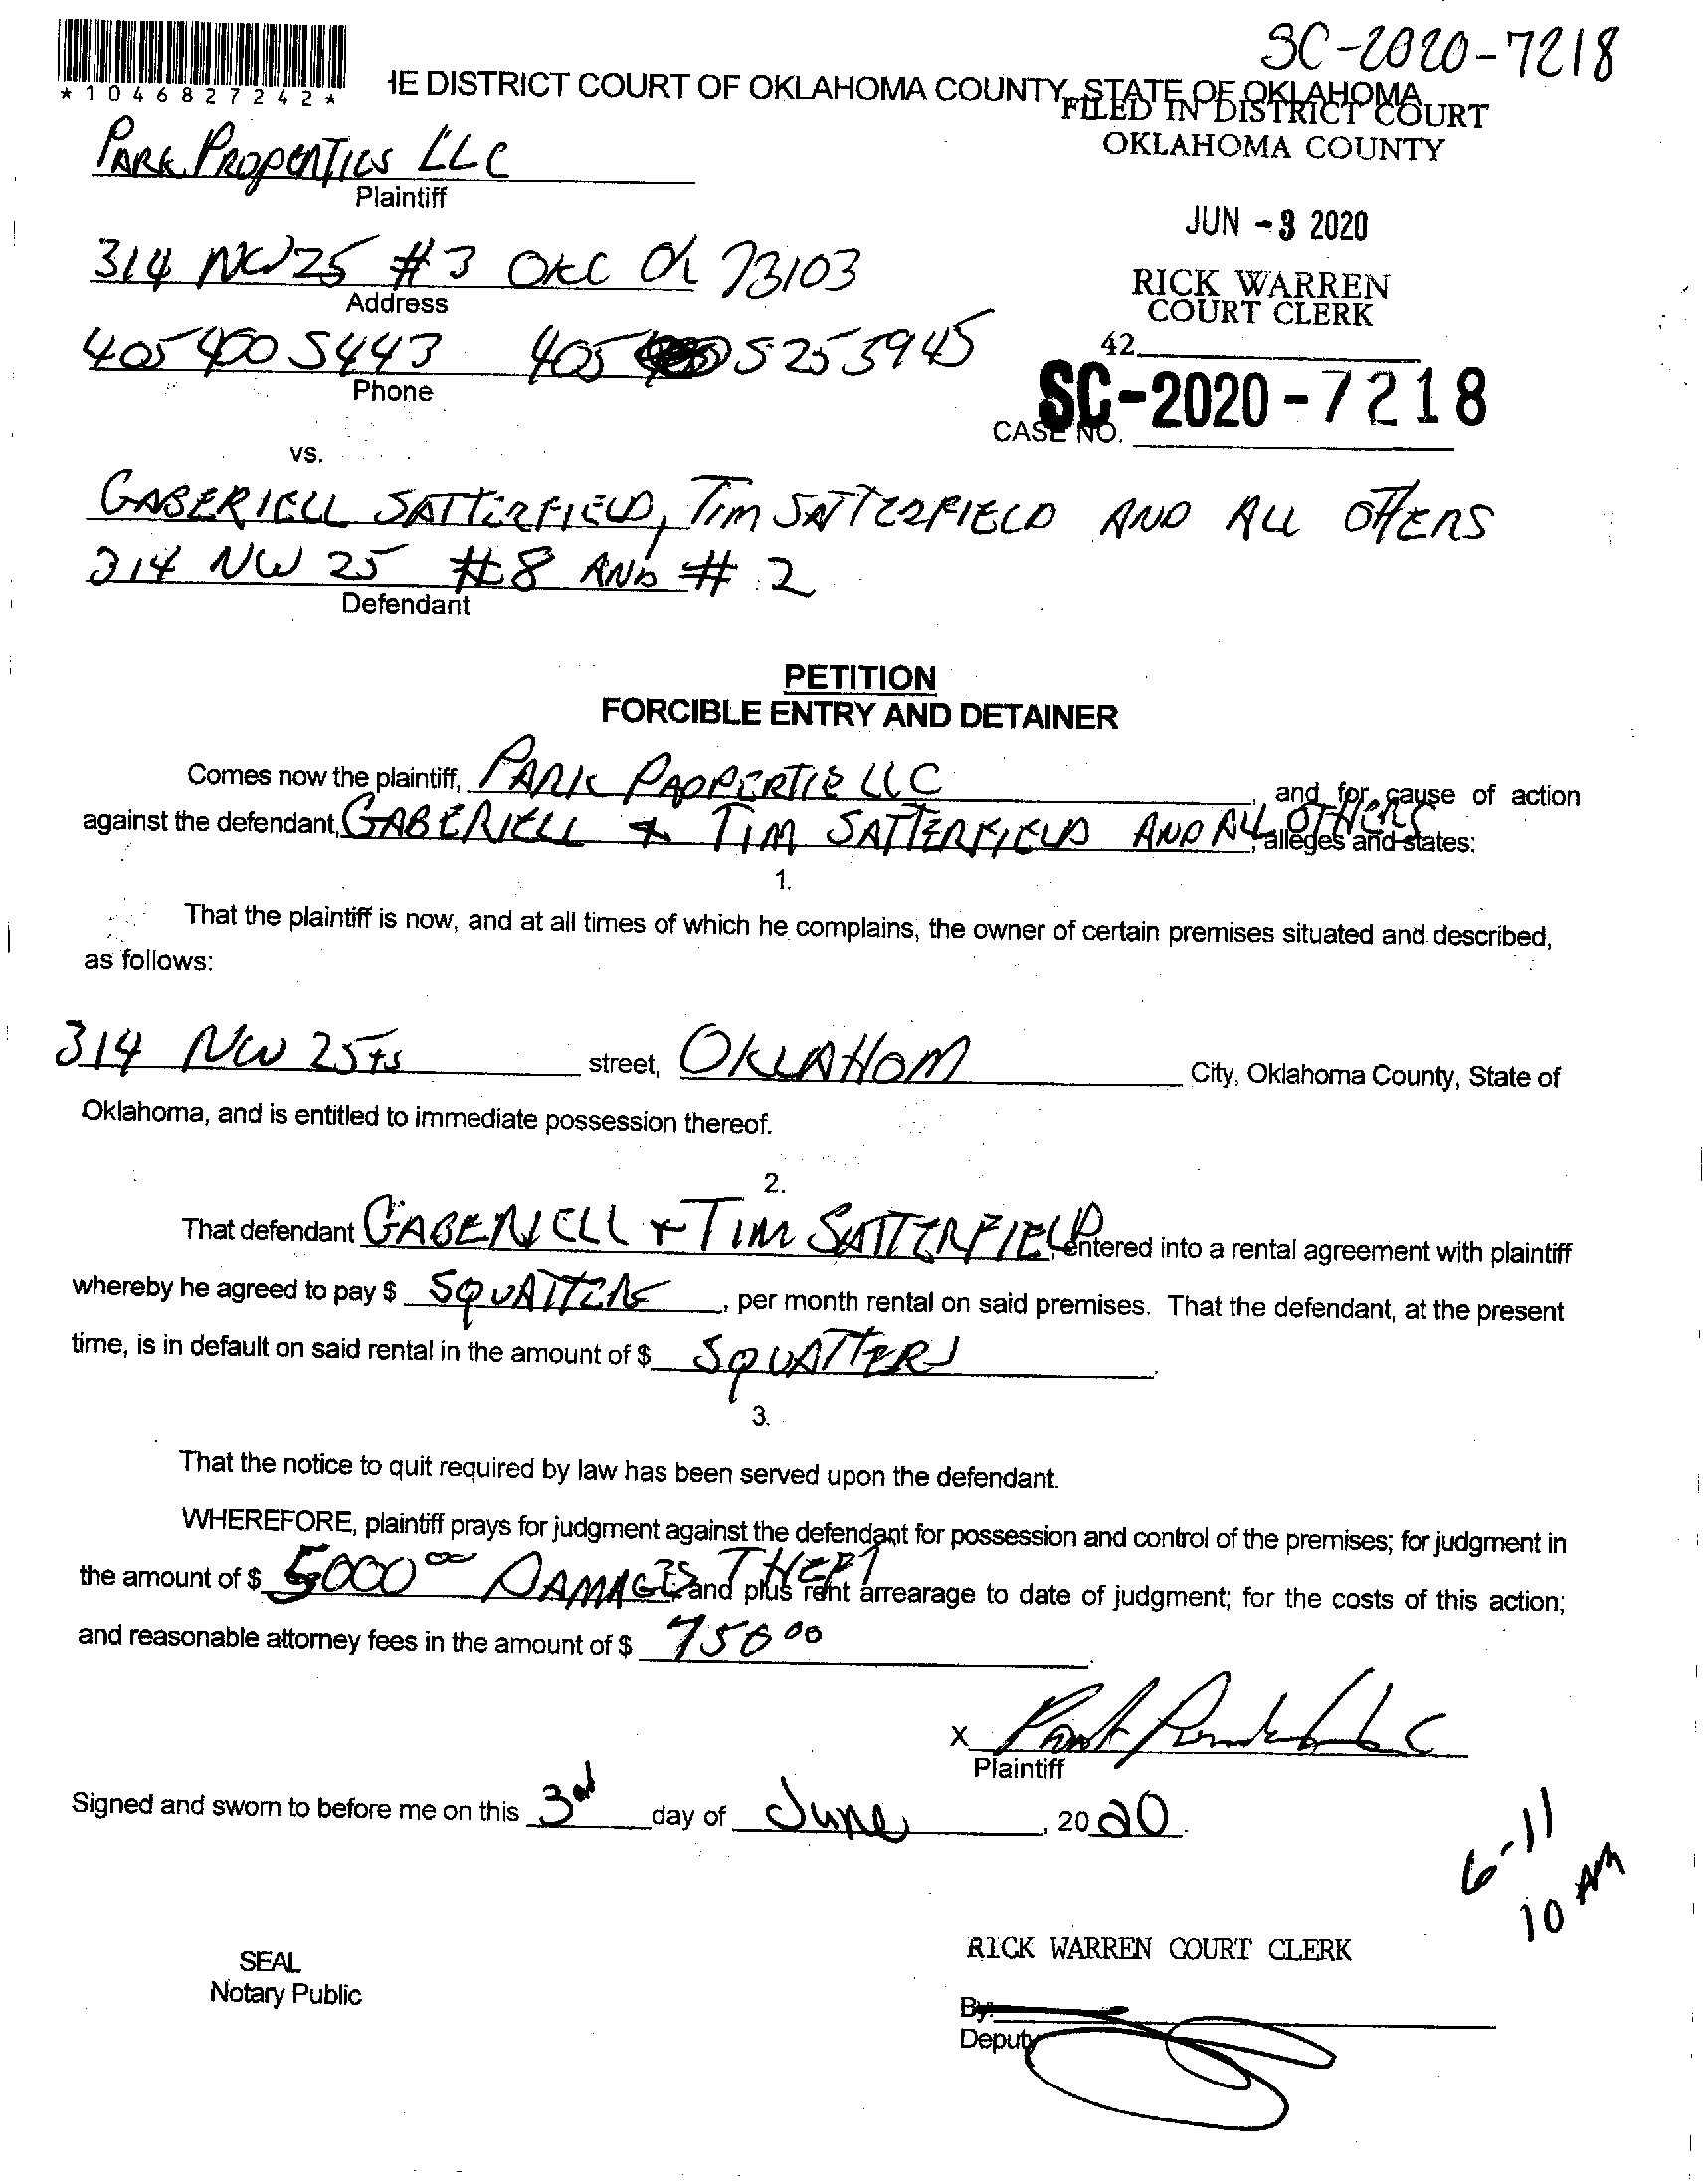 SC-2020-7218
*1046827242*
IE DISTRICT COURT OF OKLAHOMA COUNTY, STATE OF OKLAHOMA
FILED IN DISTRICT COURT
OKLAHOMA COUNTY
PARK PROPERTIES LLC
Plaintiff
JUN -3 2020
314 NW 25 #3 OKC OK 73103
Address
RICK WARREN
COURT CLERK
405 400 5443 405 525 5945
Phone
42
SC-2020-7218
CASE NO.
vs.
GABERIELL SATTERFIELD, TIM SATTERFIELD AND ALL OTHERS
314 NW 25 #8 AND # 2
Defendant
PETITION
FORCIBLE ENTRY AND DETAINER
Comes now the plaintiff, PARK PROPERTIE LLC and for cause of action
against the defendant, GABERIELL & TIM SATTERFIELD AND ALL OTHERS, alleges and states:
1.
That the plaintiff is now, and at all times of which he complains, the owner of certain premises situated and described,
as follows:
314 NW 25TS street, OKLAHOM City, Oklahoma County, State of
Oklahoma, and is entitled to immediate possession thereof.
2.
That defendant GABERIELL & TIM SATTERFIELD, entered into a rental agreement with plaintiff
whereby he agreed to pay $ SQUATTERS, per month rental on said premises. That the defendant, at the present
time, is in default on said rental in the amount of $ SQUATTERS.
3.
That the notice to quit required by law has been served upon the defendant.
WHEREFORE, plaintiff prays for judgment against the defendant for possession and control of the premises; for judgment in
the amount of $ 5000 00 DAMAGES THEFT and plus rent arrearage to date of judgment; for the costs of this action;
and reasonable attorney fees in the amount of $ 750 00.
X
Plaintiff
Signed and sworn to before me on this 3rd day of June, 2020.
6-11
10 AM
RICK WARREN COURT CLERK
SEAL
Notary Public
By:
Deputy